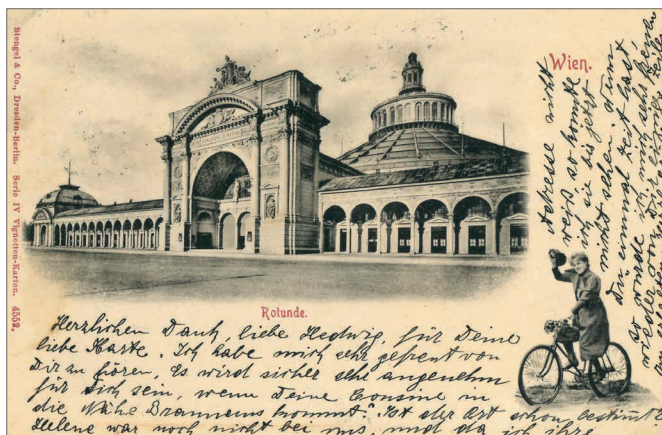 Stengel & Co., Dresden-Berlin. Serie IV Vignetten-Karten. 4552.
Wien.
Rotunde.
Herzlichen Dank, liebe Hedwig, für Deine
liebe Karte. Ich habe mich sehr gefreut von
Dir zu hören, Es wird sicher sehr angenehm
für Dich sein, wenn Deine Cousine in
die Nähe kommt. Ist der Ort schon bestimmt?
Helene war noch nicht bei uns, und da ich ihre
Adresse nicht
weiß so konnte
ich sie bis jetzt
nicht sehen. Wenn
Du einmal Zeit hast
so würde ich mich sehr freuen
wieder von Dir einige Zeilen